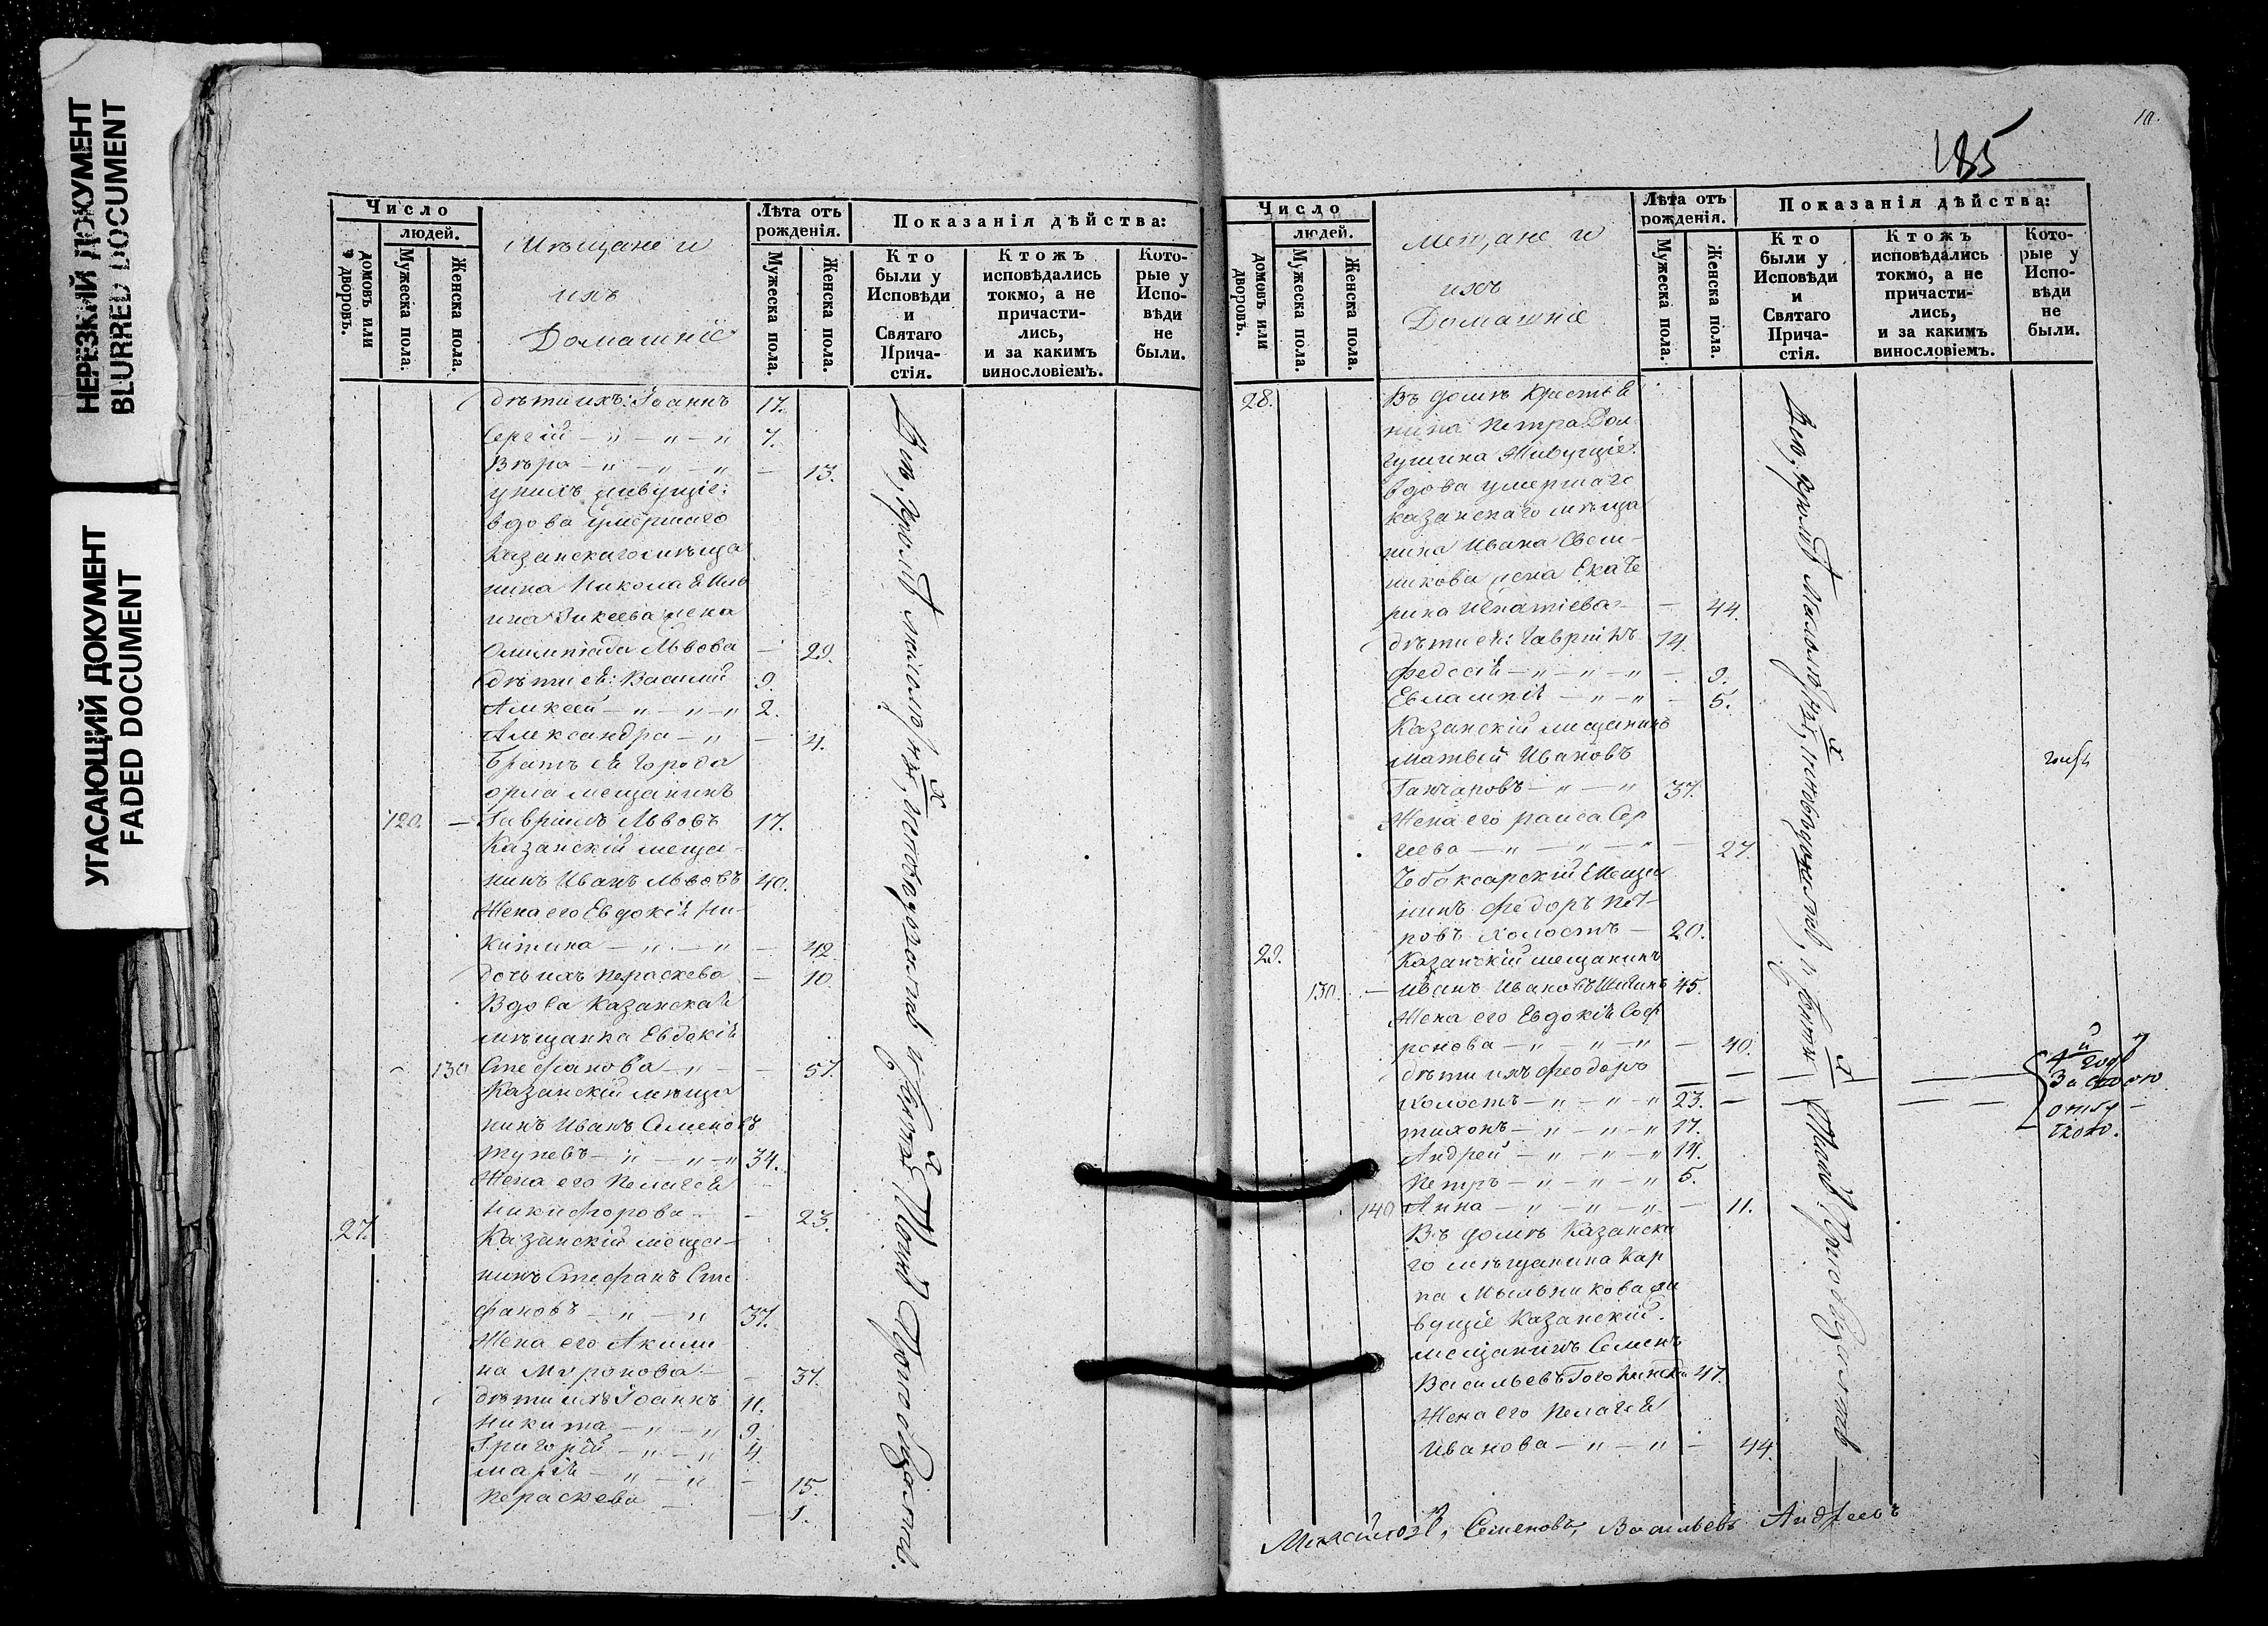 НЕРЕЗКИЙ ДОКУМЕНТ
BLURRED DOCUMENT
УГАСАЮЩИЙ ДОКУМЕНТ
FADED DOCUMENT
Число
людей.
домовъ или дворовъ.
Мужеска пола.
Женска пола.
Мѣщане и
ихъ
Домашніе
Лѣта отъ рожденія.
Мужеска пола.
Женска пола.
Показанія дѣйства:
Кто были у Исповѣди и Святаго Прича-стія.
Ктожъ исповѣдались токмо, а не причасти-лись, и за какимъ винословіемъ.
Кото-рые у Испо-вѣди не были.
дѣти ихъ: Іоаннъ 17.
Сергій — „ — „ — „ 7.
Вѣра — „ — „ — „ — 13.
у нихъ живущіе:
вдова умершаго
Казанскаго мѣща
нина Николая Иль
ина Зикеева жена
Олимпіада Львова — 29.
дѣти ея: Василій 9.
Алексей — „ — „ — „ 2.
Александра — „ — 4.
братъ ея города
орла мещанинъ
120. — Гавріилъ Львовъ 17.
Казанскій меща-
нинъ Иванъ Львовъ 40.
Жена его Евдокія Ни-
китина — „ — „ — 42.
дочь ихъ Параскева — 10.
Вдова Казанская
мѣщанка Евдокія
130 Стефанова — „ — — 57.
Казанскій мѣща
нинъ Иванъ Семеновъ
— „ — „ — „ 34.
Жена его Пелагея
Никифорова — — 23.
27. Казанскій меща-
нинъ Стефанъ Сте
фановъ — „ — „ 37.
Жена его Акили
на Миронова — — 37.
дѣти ихъ Іоаннъ 11.
Никита — „ — „ 9.
Григорій — „ — „ 4.
Марія — „ — „ — 15.
Параскева — — 1.
Всѣ, кромѣ малолѣтнихъ, исповѣдовались и Святыхъ Таинъ Пріобщались.
185
Число
людей.
домовъ или дворовъ.
Мужеска пола.
Женска пола.
Мещане и
ихъ
Домашніе
Лѣта отъ рожденія.
Мужеска пола.
Женска пола.
Показанія дѣйства:
Кто были у Исповѣди и Святаго Прича-стія.
Ктожъ исповѣдались токмо, а не причасти-лись, и за какимъ винословіемъ.
Кото-рые у Испо-вѣди не были.
28. Въ домѣ крестья
нина Петра Дол
гушина Живущіе:
вдова умершаго
казанскаго мѣща
нина Ивана Свеш-
никова жена Екате
рина Игнатіева — — 44.
дѣти ея: Гавріилъ 14.
Федосія — „ — „ — „ — 9.
Евлампія — „ — „ — 5.
Казанскій мещанинъ
Матвей Ивановъ
Ганчаровъ — „ — „ 37.
Жена его раиса Сер
геева — „ — „ — „ — 27.
Чебоксарскій меща
нинъ Федоръ Пет-
ровъ холостъ — 20.
29. Казанскій мещанинъ
130. — Иванъ Ивановъ 45.
Жена его Евдокія Соф
ронова — „ — „ — „ — 40.
дѣти ихъ Феодоръ
холостъ — „ — „ — „ 23.
Тихонъ — „ — „ — „ 17.
Андрей — „ — „ — „ 14.
Петръ — „ — „ — „ 5.
140 Анна — „ — „ — „ — 11.
Въ домѣ Казанска
го мѣщанина Кар
па Мыльникова жи
вущіе Казанскій
мещанинъ Семенъ
Васильевъ 47.
Жена его Пелагея
Иванова — „ — „ — 44.
Всѣ, кромѣ Малолѣтнихъ, исповѣдывались, и Святыхъ Таинъ Пріобщались —
4й годъ
За
отлу-
чкою.
Семеновъ, Васильевъ Андреевъ